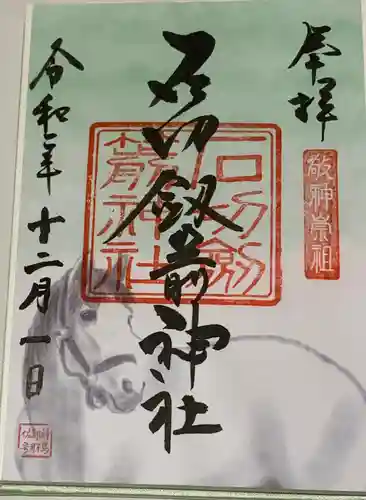 奉拝
敬神崇祖
石切劔箭神社
石切劔箭神社
令和元年十二月一日